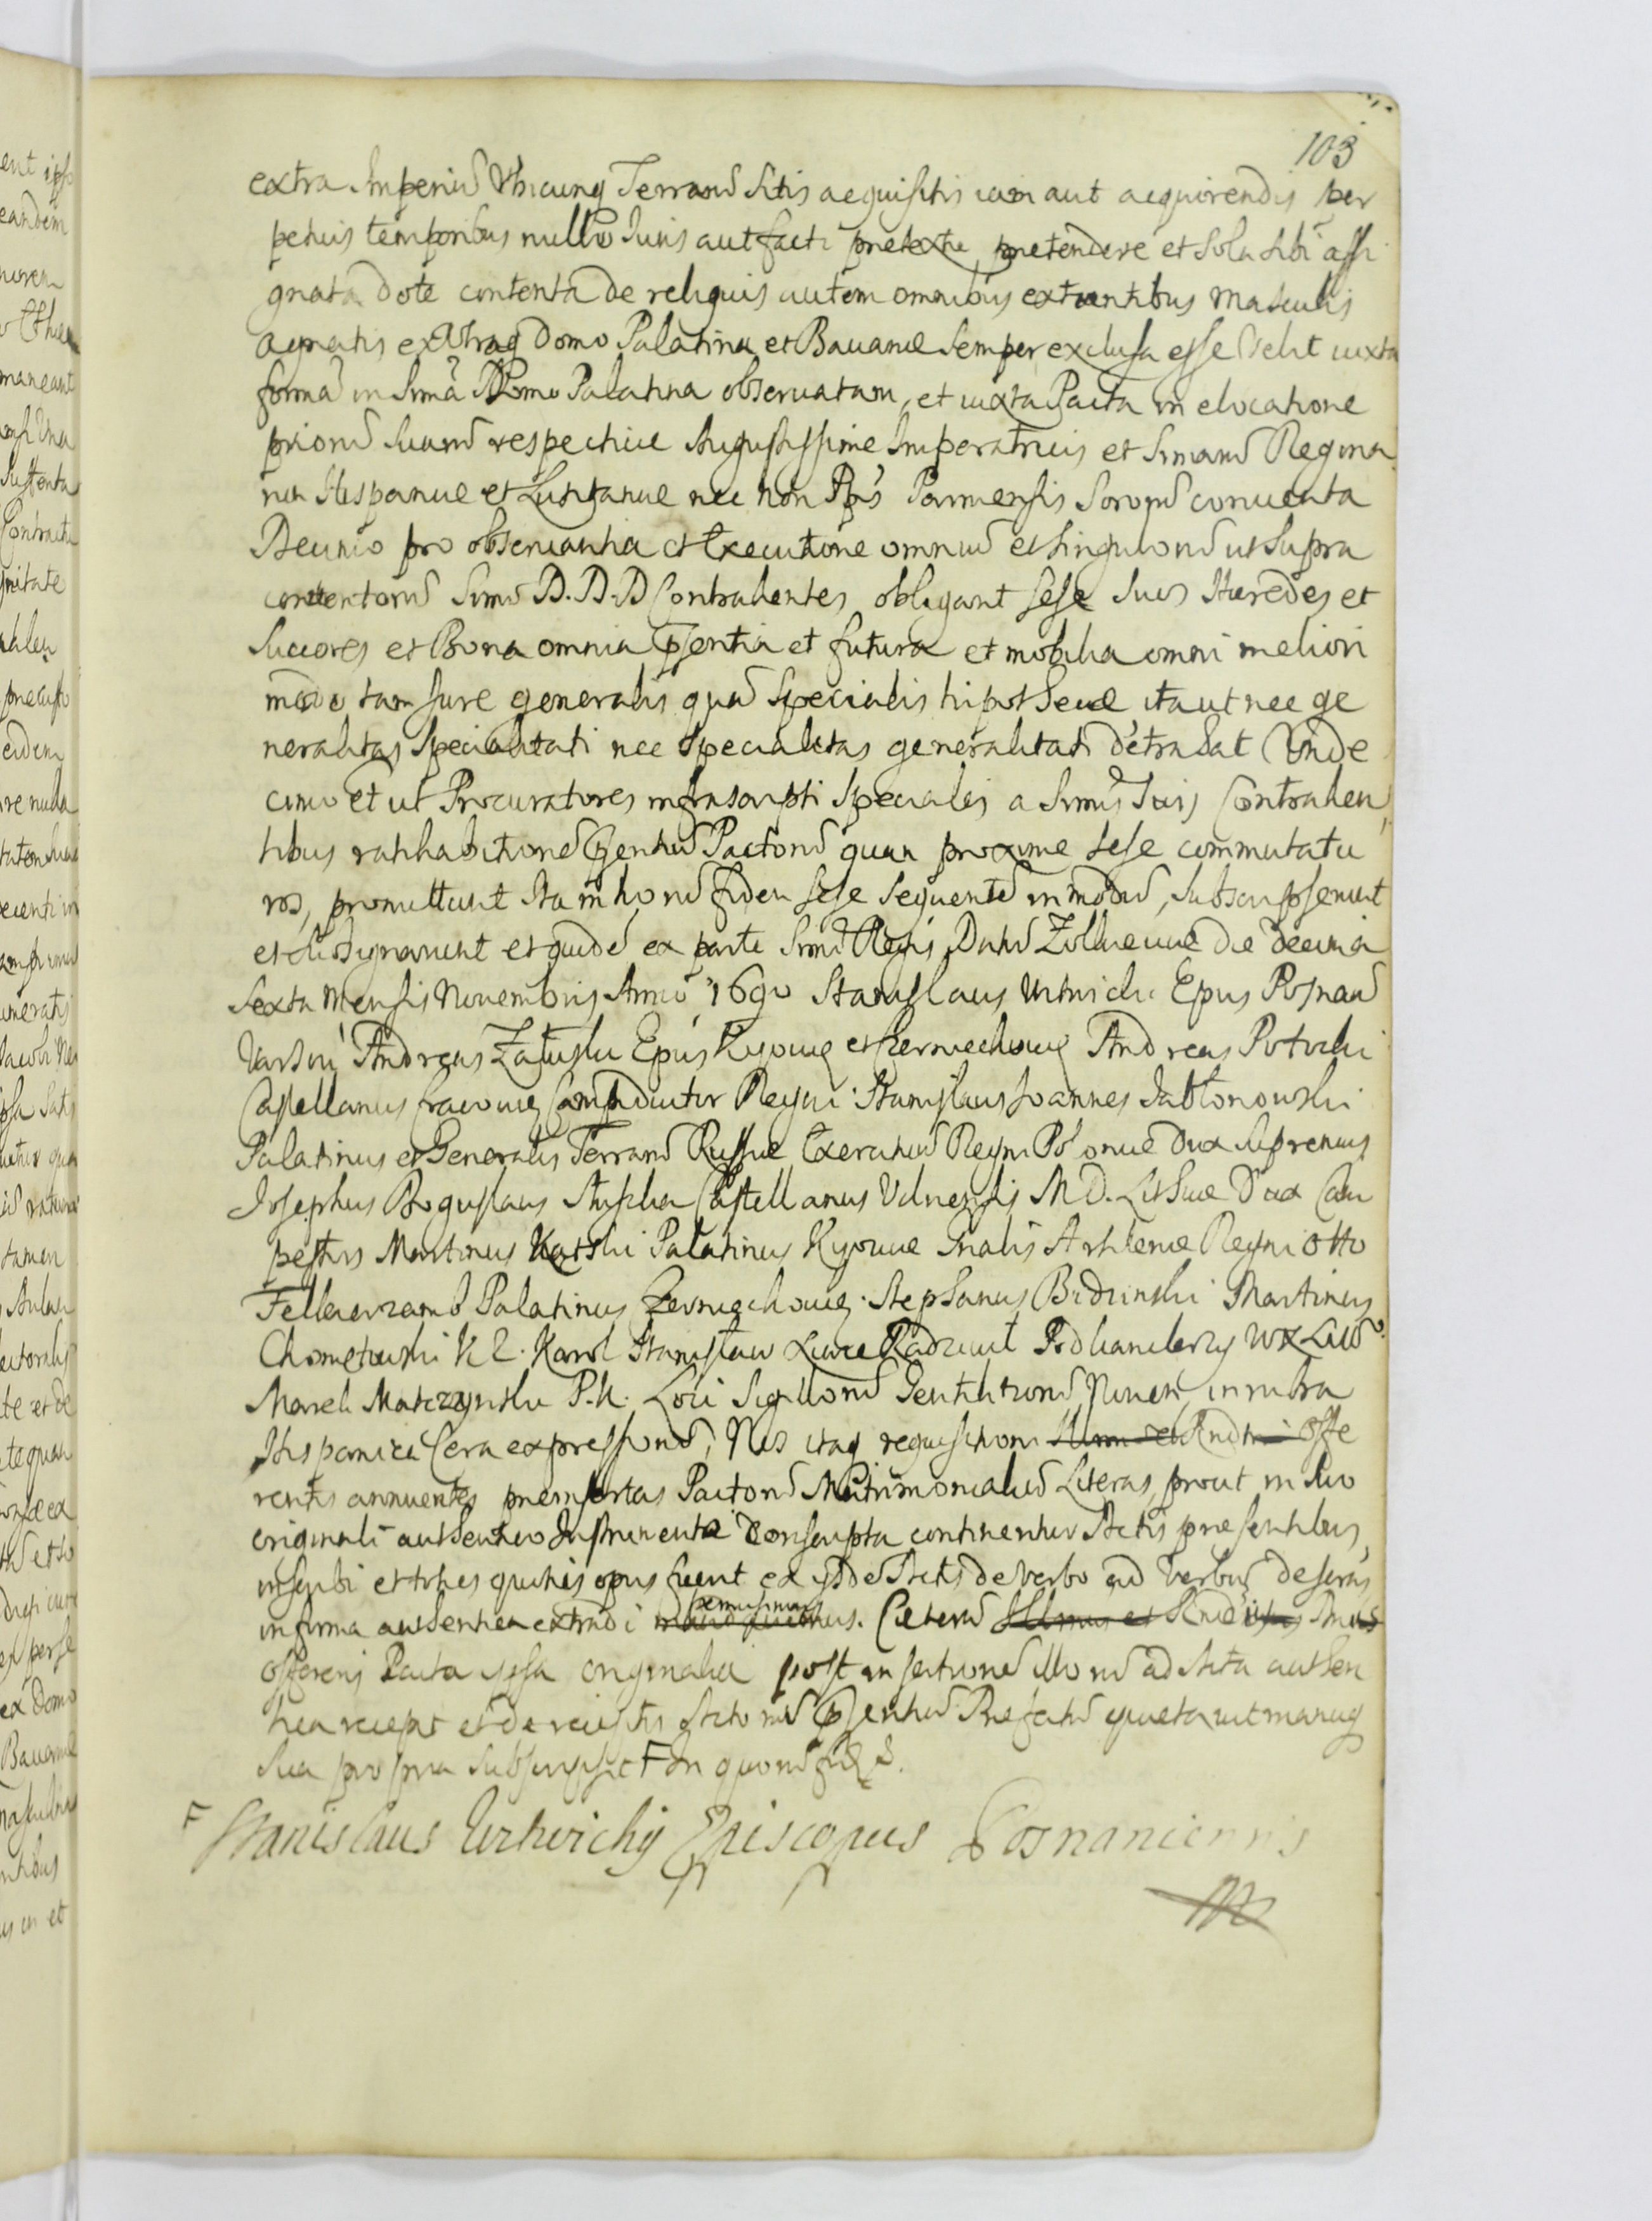 103
extra Imperiũ Vbicunq Terrarũ sitis acquisitis iam aut acquirendis per
petuis temporibus nullo Iuris aut facti prætextu prætendere et sola sibi assi
gnata dote contenta de reliquis autem omnibus extantibus masculis
agnatis ex Vtraq Domo Palatina et Bauariæ semper exclusa esse Velit iuxta
formã in Sermã Domo Palatina obseruatam, et iuxta Pacta in elocatione
priorũ suarũ respectiue Augustissimæ Imperatricis et Sermarũ Regina
rũ Hispaniæ et Lusitaniæ nec non Ppis Parmensis Sororũ conuenta
Decimo pro obseruantia et Executione omniũ et singulorũ ut supra
contentorũ Sermi D. D. D Contrahentes obligant sese suos Hæredes et
Succores et Bona omnia pñtia et futura et mobilia omni meliori
modo tam Iure generalis quã specialis hipothecæ ita ut nec ge
neralitas specialitati nec specialitas generalitati detrahat Vnde
cimo et ut Procuratores infrascripti speciales a Sermis suis Contrahen
tibus ratihabitionẽ pñtiũ Pactorũ quam proxime sese commutatu
ros, promittunt Ita in horũ fidem sese sequentẽ in modũ, subscripserunt
et subsignarunt et quidẽ ex parte Sermi Regis Datũ Zolkieuiæ die decima
sexta Mensis Nouembris Anno 1690 Stanislaus Witwicki Epus Posnan
Vars̃n Andreas Załuski Epus Kyouiẽ et Czerniechouiẽ Andreas Potocki
Castellanus Cracouieñ Campiductor Regni Stanislaus Ioannes Jabłonowski
Palatinus et Generalis Terrarũ Russiæ Exercituũ Regni Poloniæ Dux supremus
Iosephus Boguslaus Słuszka Castellanus Vilnensis M D. Lithuæ Dux Cam
pestris Martinus Kątski Palatinus Kyouiæ Gnalis Artileriæ Regni Otto
Felkierzamb Palatinus Czerniechouieñ Stephanus Bidzinski Martinus
Chomętowski K N. Karol Stanisław Xiąże Radziwił Podkanclerzy WX Litto
Marek Matczynski P. K. Loci Sigillorũ Gentilitiorũ Nouem in rubra
Hispanica Cera expressorũ, Nos itaq requisitioni Offe
rentis annuentes præinsertas Pactorũ Matrimonialiũ Literas, prout in suo
originali authentico Instrumento conscripta continentur Actis præsentibus,
inscribi et toties quoties opus fuerit ex ijsdẽ Actis de verbo ad verbũ descriptas
in forma authentica extradi permisimus. Cæterũ
offerens Pacta ipsa originalia post insertionẽ illorũ ad Acta authen
tica recepit et de receptis Actorũ pñtiũ Præfectũ quietauit manuq
sua propria subscripsit F In quorũ fidẽ.
F Stanislaus Witwichÿ Episcopus Posnaniensis